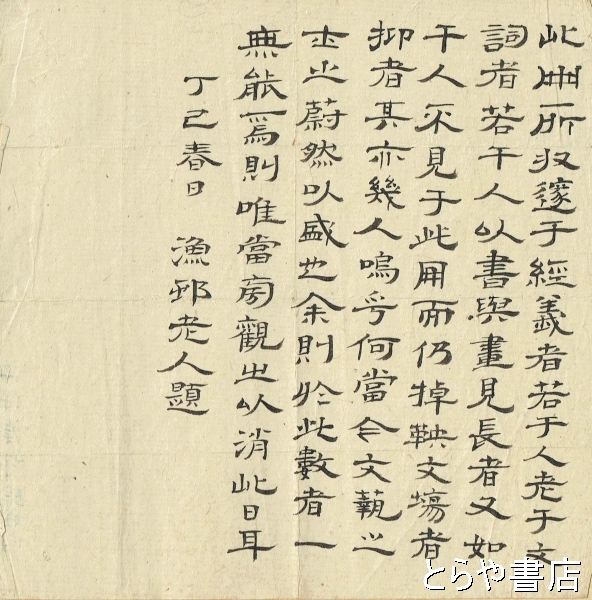 此冊所収邃于經義者若干人老于文
詞者若干人以書與畫見長者又如
干人不見于此冊而仍掉鞅文場者
抑者其亦幾人嗚乎何當今文藝之
士之蔚然以盛也余則於此數者一
無能焉則唯當旁觀之以消此日耳
丁巳春日 漁邨老人題
とらや書店